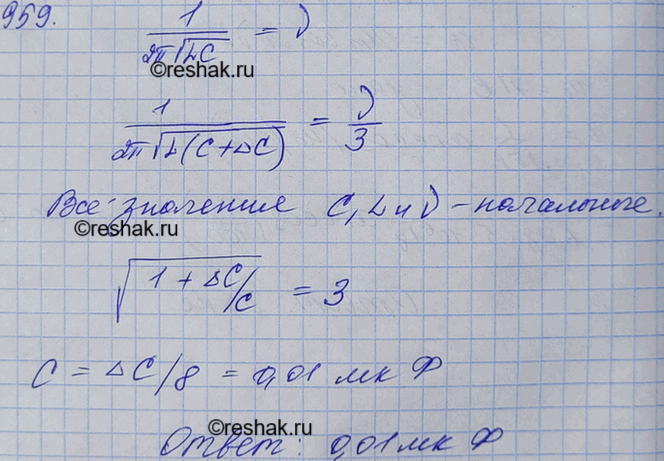 959.
1/(2π√LC) = ν
©reshak.ru
1/(2π√L(C+ΔC)) = ν/3
Все значения C, L и ν - начальные.
©reshak.ru
√(1 + ΔC/C) = 3
C = ΔC/8 = 0,01 мк Ф
©reshak.ru
Ответ: 0,01 мк Ф